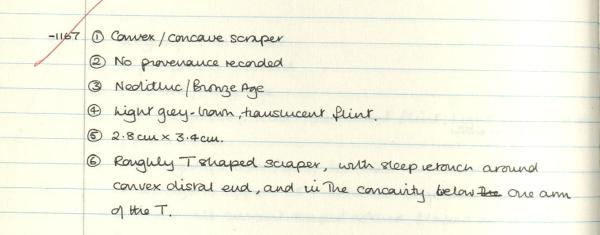 -1167 ① Convex/concave scraper
② No provenance recorded
③ Neolithic/Bronze Age
④ Light grey-brown, translucent flint.
⑤ 2.8cm × 3.4cm.
⑥ Roughly T shaped scraper, with steep retouch around
convex distal end, and in the concavity below the one arm
of the T.